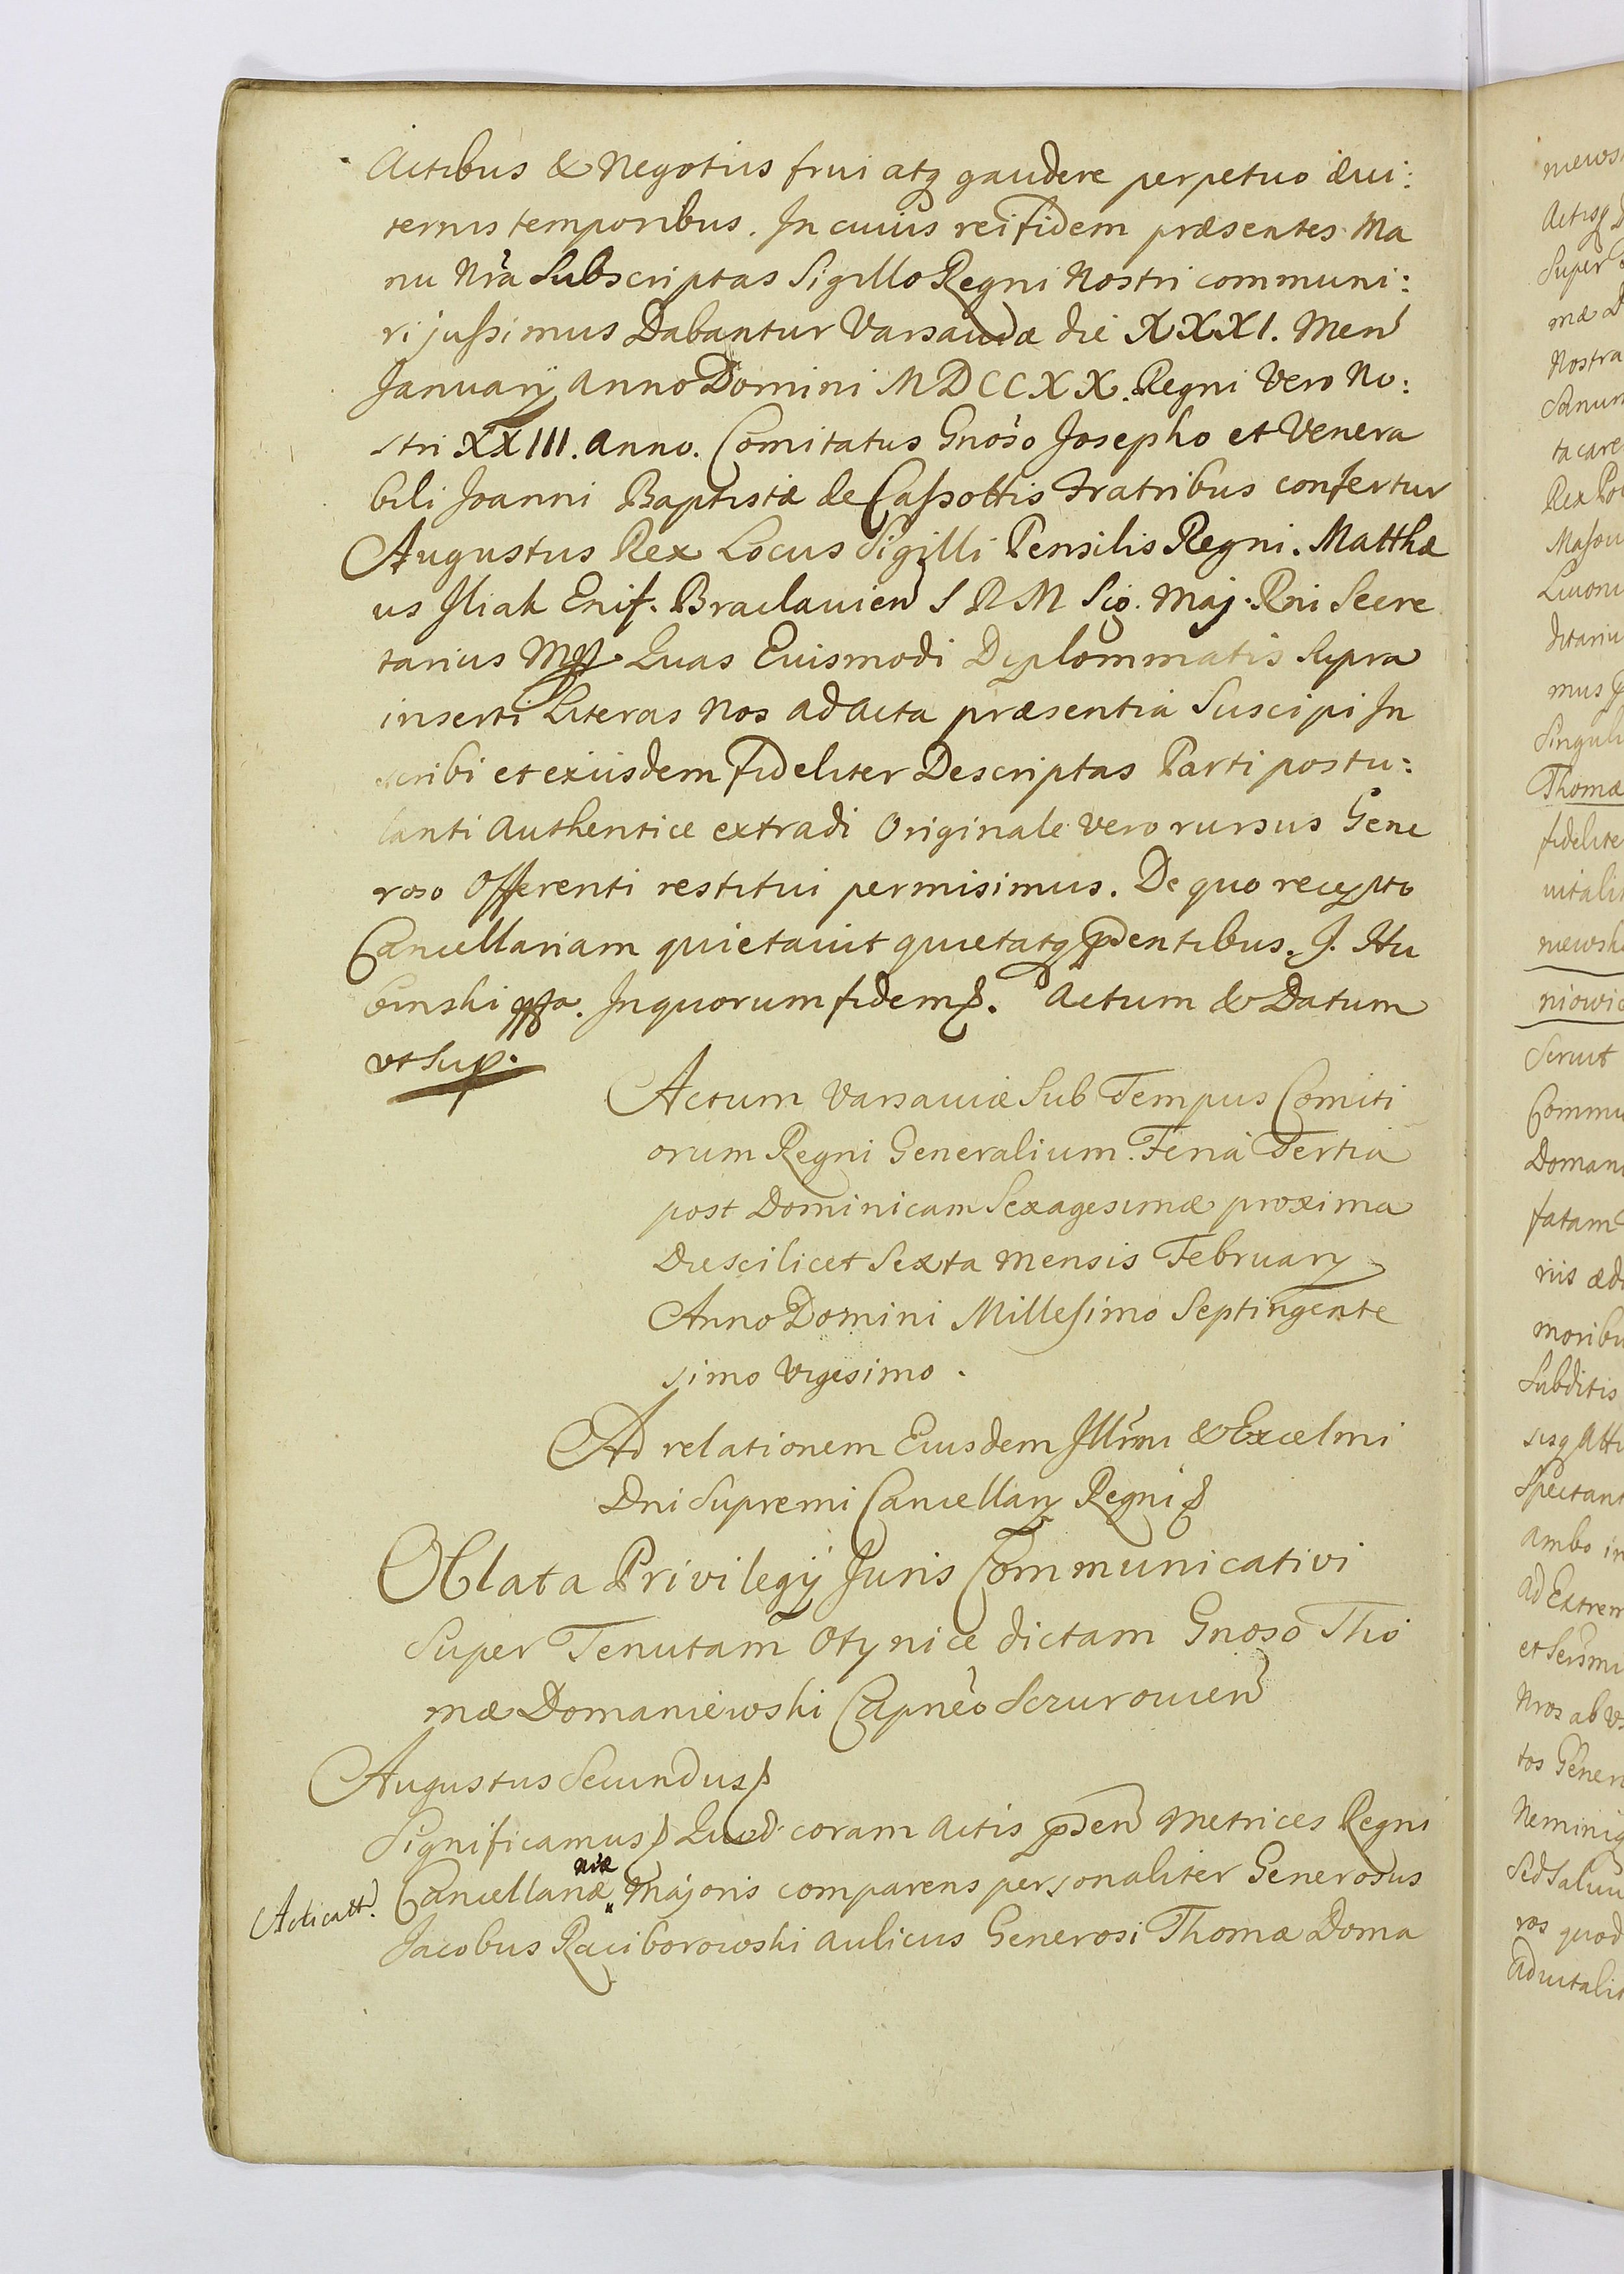 Actibus & Negotiis frui atq gaudere perpetuo ævi:
ternis temporibus. In cuius rei fidem præsentes Ma
nu Nra Subscriptas Sigillo Regni Nostri communi:
ri jussimus Dabantur Varsaviæ die XXXI. Men
Januarij Anno Domini MDCCXX. Regni Vero No:
stri XXIII. Anno. Comitatus Gnoso Josepho et Venera
bili Joanni Baptistæ de Cassottis Fratribus confertur
Augustus Rex Locus Sigilli Pensilis Regni. Matthæ
us Iliak Ensif. Braclavien S R M Sig. Maj. Rni Secre
tarius Mpp Quas Euismodi Diplommatis Supra
inserti Literas Nos ad Acta præsentia Suscipi In
scribi et exiisdem fideliter Descriptas Parti postu:
lanti Authentice extradi Originale vero rursus Gene
roso Offerenti restitui permisimus. De quo recepto
Cancellariam quietavit quietatq pdentibus. J. Hu
binski mpp. In quorum fidem &. Actum & Datum
ut Sup.
Actum Varsaviæ Sub Tempus Comiti
orum Regni Generalium. Feria Tertia
post Dominicam Sexagesimæ proxima
Die scilicet Sexta Mensis February
Anno Domini Millesimo Septingente
simo Vigesimo.
Ad relationem Eiusdem Illmi & Excelmi
Dni Supremi Cancellary Regni &
Oblata Privilegij Juris Communicativi
Super Tenutam Otynice dictam Gnoso Tho
mæ Domaniewski Capneo Szurowien
Augustus Secundus &
Significamus & Quod coram Actis pden Metrices Regni
Cancellariæ næ Majoris comparens personaliter Generosus
Acticatt.
Jacobus Raciborowski Aulicus Generosi Thomæ Doma